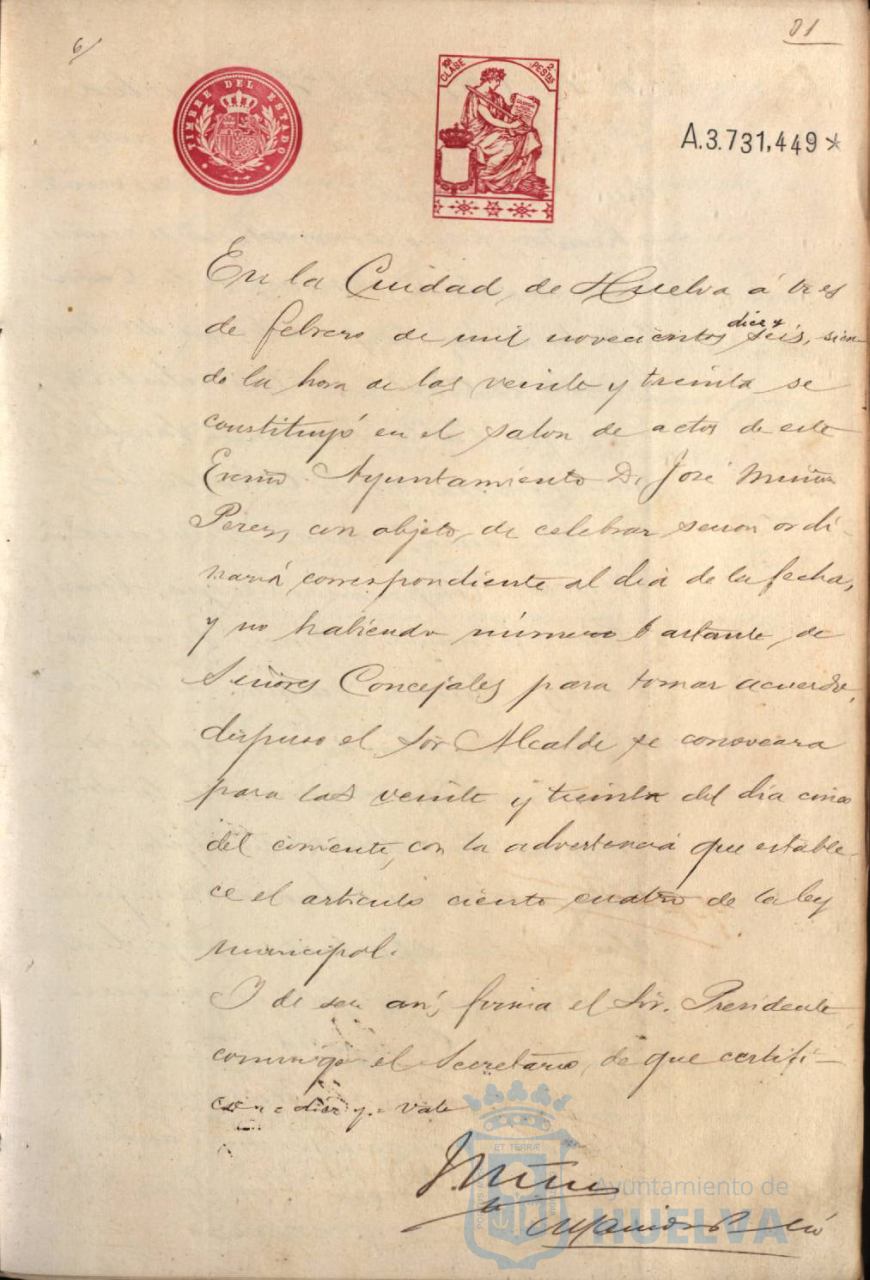 6/
81
TIMBRE DEL ESTADO
10ª CLASE
2 PESTAS
A.3.731,449*
En la Ciudad, de Huelva á tres
de febrero de mil novecientos diez y seis, sien-
do la hora de las veinte y treinta se
constituyó en el salon de actos de este
Excmo Ayuntamiento D. José Muñoz
Perez, con objeto, de celebrar sesion ordi-
naria correspondiente al dia de la fecha,
y no habiendo número bastante, de
Señores Concejales para tomar acuerdo,
dispuso el Sor Alcalde se convocara
para las veinte y treinta del día cinco
del corriente, con la advertencia que estable-
ce el articulo ciento cuatro de la ley
municipal.
Y de ser así, firma el Sor. Presidente
conmigo el Secretario, de que certifi-
co = diez y = vale
J. Muñoz
ET TERRÆ
Ayuntamiento de
HUELVA